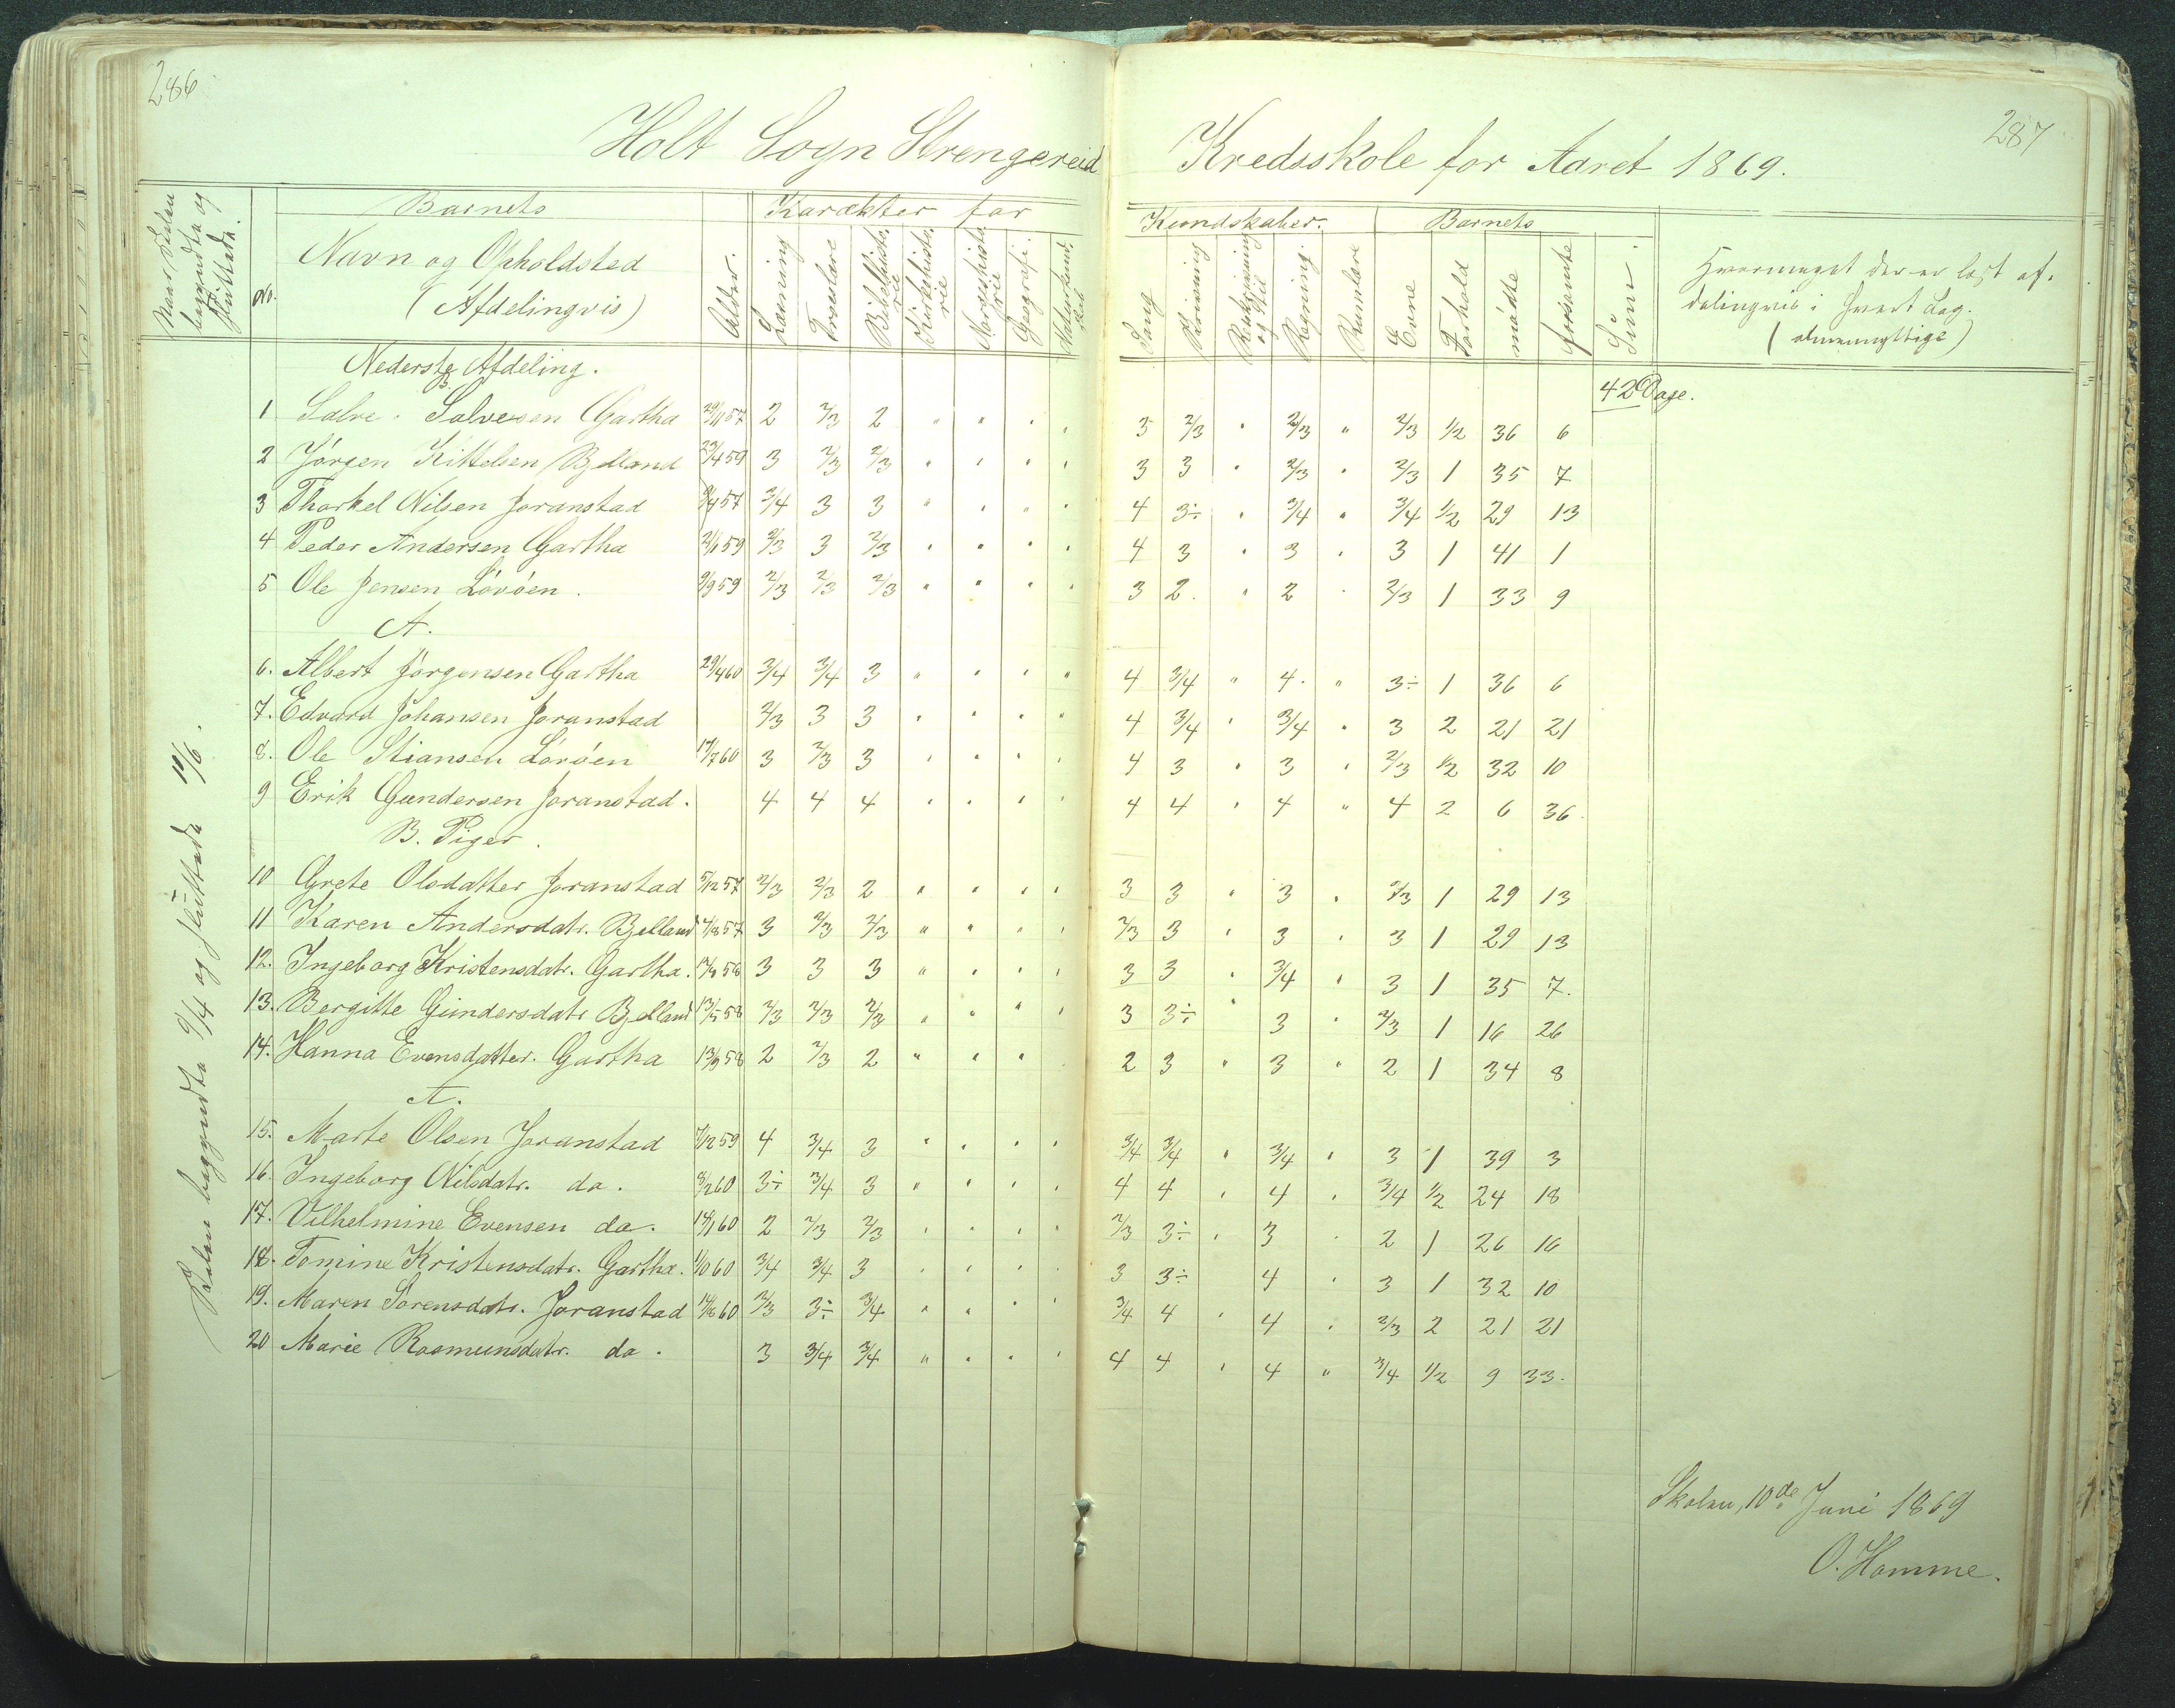 286
287
Holt Sogn Strengereid Kredsskole for Aaret 1869.
Naar Skolen begyndte og sluttede.
No.
Barnets
Navn og Opholdsted
(Afdelingvis)
Alder.
Karakter for Kundskaber.
Læsning
Troeslære
Bibelhistorie
Kirkehistorie
Norgeshistorie
Geografi.
Naturkundskab.
Sang
Skrivning
Retskrivning og Stil
Regning
Rumlære
Barnets
Evne
Forhold
mødte
forsømte
Sum.
Hvormeget der er læst afdelingvis i hvert Fag.
(almennyttige)
Nederste Afdeling.
B.
42 Dage.
1 Salve Salvesen Gartha 29/11 57 2 2/3 2 " " " " 3 2/3 " 2/3 " 2/3 1/2 36 6
2 Jörgen Kittelsen Bjelland 23/4 59 3 2/3 2/3 " " " " 3 3 " 2/3 " 2/3 1 35 7
3 Thorkel Nilsen Joranstad 57 3/4 3 3 " " " " 4 3÷ " 3/4 " 3/4 1/2 29 13
4 Peder Andersen Gartha 59 2/3 3 2/3 " " " " 4 3 " 3 " 3 1 41 1
5 Ole Jensen Lövöen. 9/9 59 2/3 2/3 2/3 " " " " 3 2 " 2 " 2/3 1 33 9
A.
6. Albert Jørgensen Gartha 29/4 60 3/4 3/4 3 " " " " 4 3/4 " 4. " 3÷ 1 36 6
7. Edvard Johansen Joranstad 2/3 3 3 " " " " 4 3/4 " 3/4 " 3 2 21 21
8. Ole Stiansen Lövöen 17/7 60 3 2/3 3 " " " " 4 3 " 3 " 2/3 1/2 32 10
9 Erik Gundersen Joranstad. 4 4 4 " " " " 4 4 " 4 " 4 2 6 36.
B. Piger.
10 Grete Olsdatter Joranstad 5/12 57 2/3 2/3 2 " " " " 3 3 " 3 " 2/3 1 29 13
11 Karen Andersdatr. Bjelland 4/8 57 3 2/3 2/3 " " " " 2/3 3 " 3 " 3 1 29 13
12. Ingeborg Kristensdatr. Gartha. 58 3 3 3 " " " " 3 3 " 3/4 " 3 1 35 7.
13. Bergitte Gundersdatr Bjelland 13/5 58 2/3 2/3 2/3 " " " " 3 3÷ " 3 " 2/3 1 16 26
14. Hanna Evensdatter. Gartha 13/9 58 2 2/3 2 " " " " 2 3 " 3 " 2 1 34 8
A.
15. Marte Olsen Joranstad 7/12 59 4 3/4 3 " " " " 3/4 3/4 " 3/4 " 3 1 39 3
16. Ingeborg Nilsdatr. do. 8/2 60 3÷ 3/4 3 " " " " 4 4 " 4 " 3/4 1/2 24 18
17. Vilhelmine Evensen do. 14/1 60 2 2/3 2/3 " " " " 2/3 3÷ " 3 " 2 1 26 16
18. Tomine Kristensdatr. Gartha. 60 3/4 3/4 3 " " " " 3 3÷ 4 " 3 1 32 10
19. Maren Sörensdatr. Joranstad 60 2/3 3÷ 3/4 " " " " 3/4 4 " 4 " 2/3 2 21 21
20 Marie Rasmunsdatr. do. 3 3/4 3/4 " " " " 4 4 " 4 " 3/4 1/2 9 33.
Skolen begyndte 9/4 og sluttede 10/6.
Skolen, 10de Juni 1869
O. Homme.